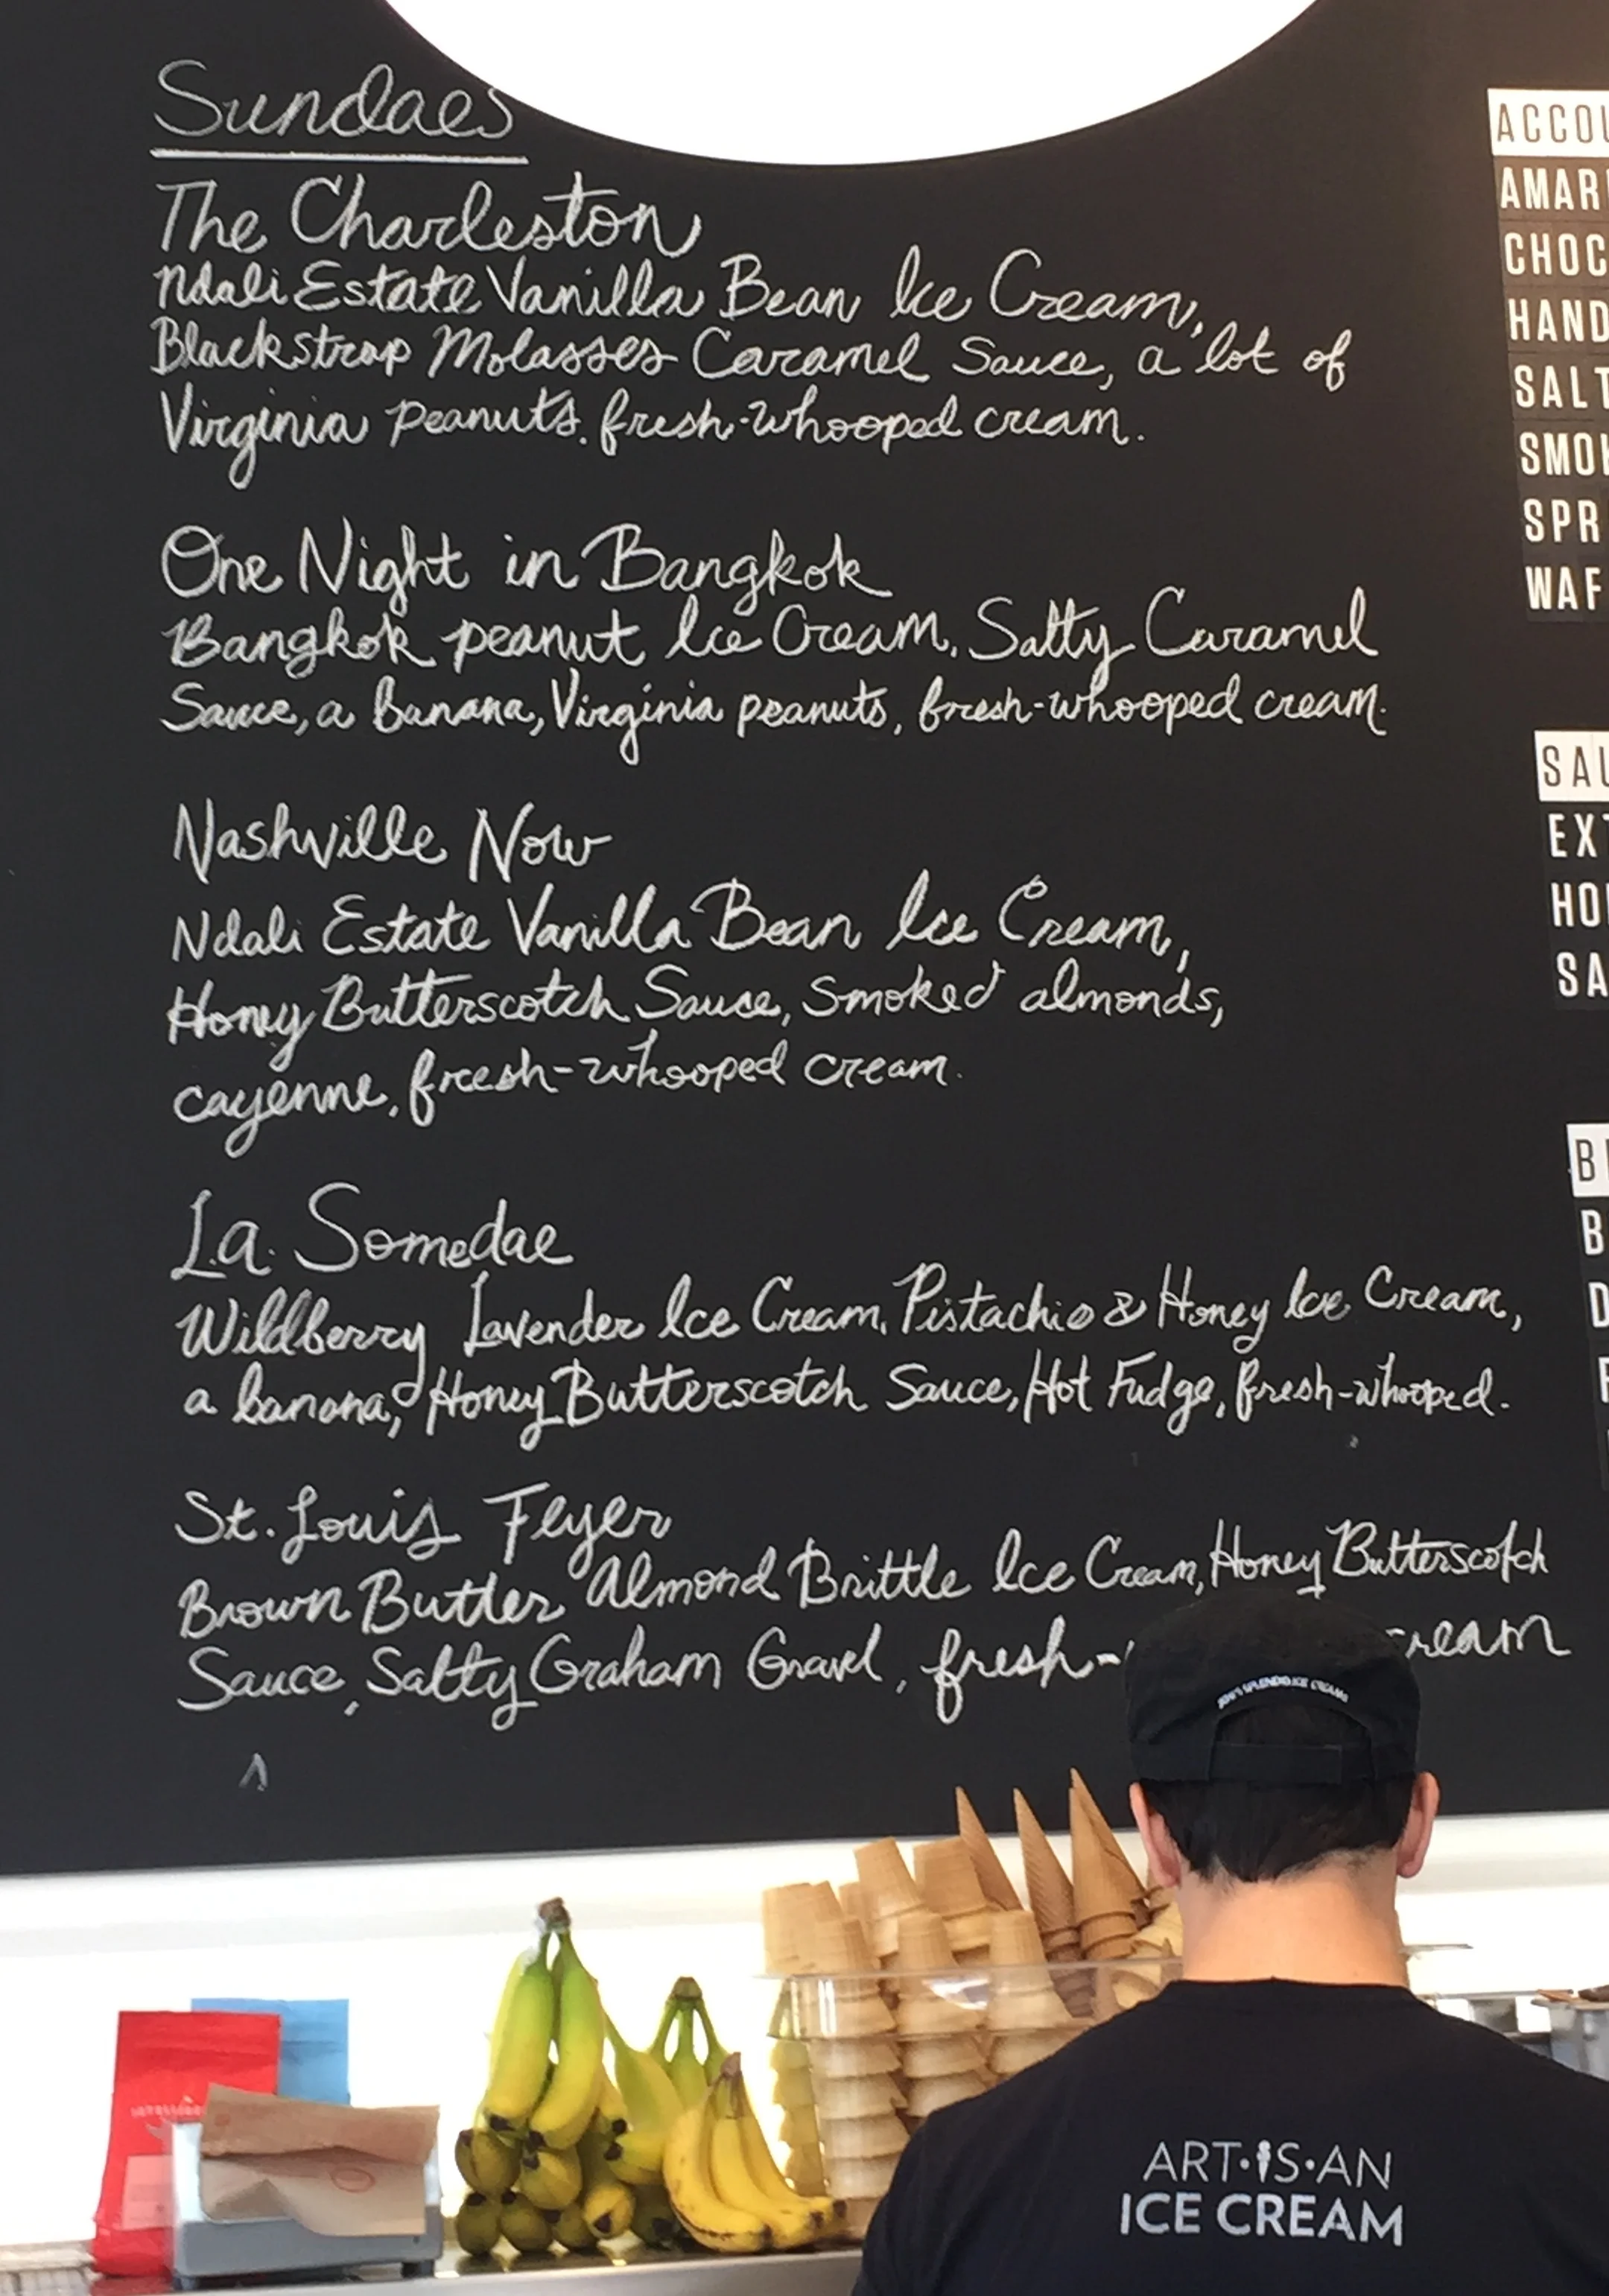 Sundaes
The Charleston
Ndali Estate Vanilla Bean Ice Cream,
Blackstrap Molasses Caramel Sauce, a lot of
Virginia Peanuts, fresh-whooped cream.
One Night in Bangkok
Bangkok peanut Ice Cream, Salty Caramel
Sauce, a banana, Virginia peanuts, fresh-whooped cream.
Nashville Now
Ndali Estate Vanilla Bean Ice Cream,
Honey Butterscotch Sauce, smoked almonds,
cayenne, fresh-whooped cream.
L.a. Somedae
Wildberry Lavender Ice Cream, Pistachio & Honey Ice Cream,
a banana, Honey Butterscotch Sauce, Hot Fudge, fresh-whooped.
St. Louis Feyer
Brown Butter Almond Brittle Ice Cream, Honey Butterscotch
Sauce, Salty Graham Gravel, fresh- cream
ACCOU
AMAR
CHOC
HAND
SALT
SMO
SPR
WAF
SAU
EXT
HO
SA
B
B
D
JENI'S SPLENDID ICE CREAMS
ART·IS·AN
ICE CREAM